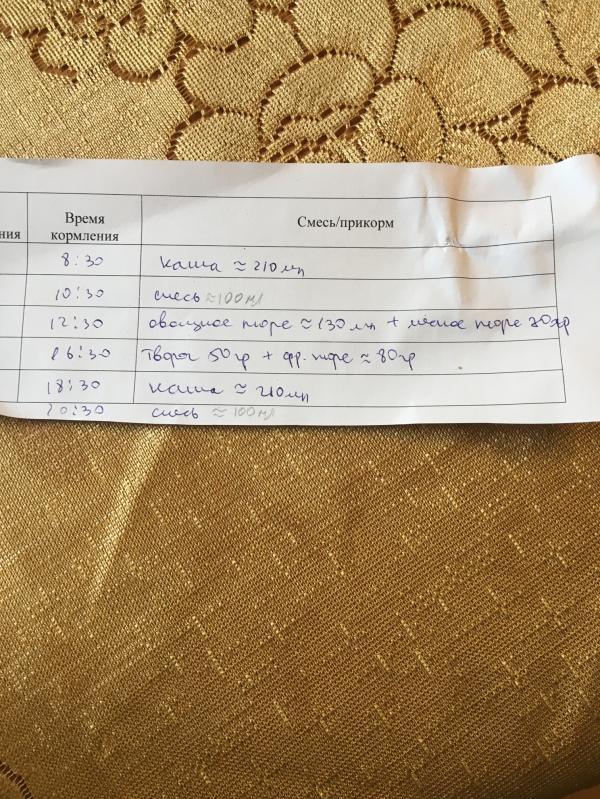 ния Время кормления Смесь/прикорм
8:30 каша ≈ 210 мл
10:30 смесь ≈100мл
12:30 овощное пюре ≈ 130 мл + мясное пюре 70гр
16:30 Творог 50 гр + фр. пюре ≈ 80гр
18:30 каша ≈ 210 мл
20:30 смесь ≈ 100мл